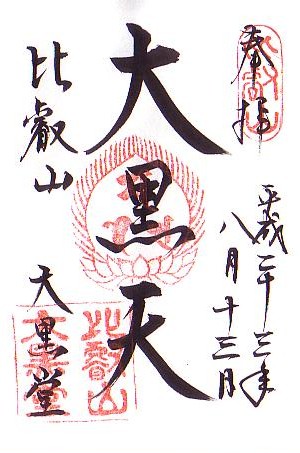 奉拝
平成二十三年
八月十三日
大黒天
比叡山
大黒堂
比叡山
大黒堂